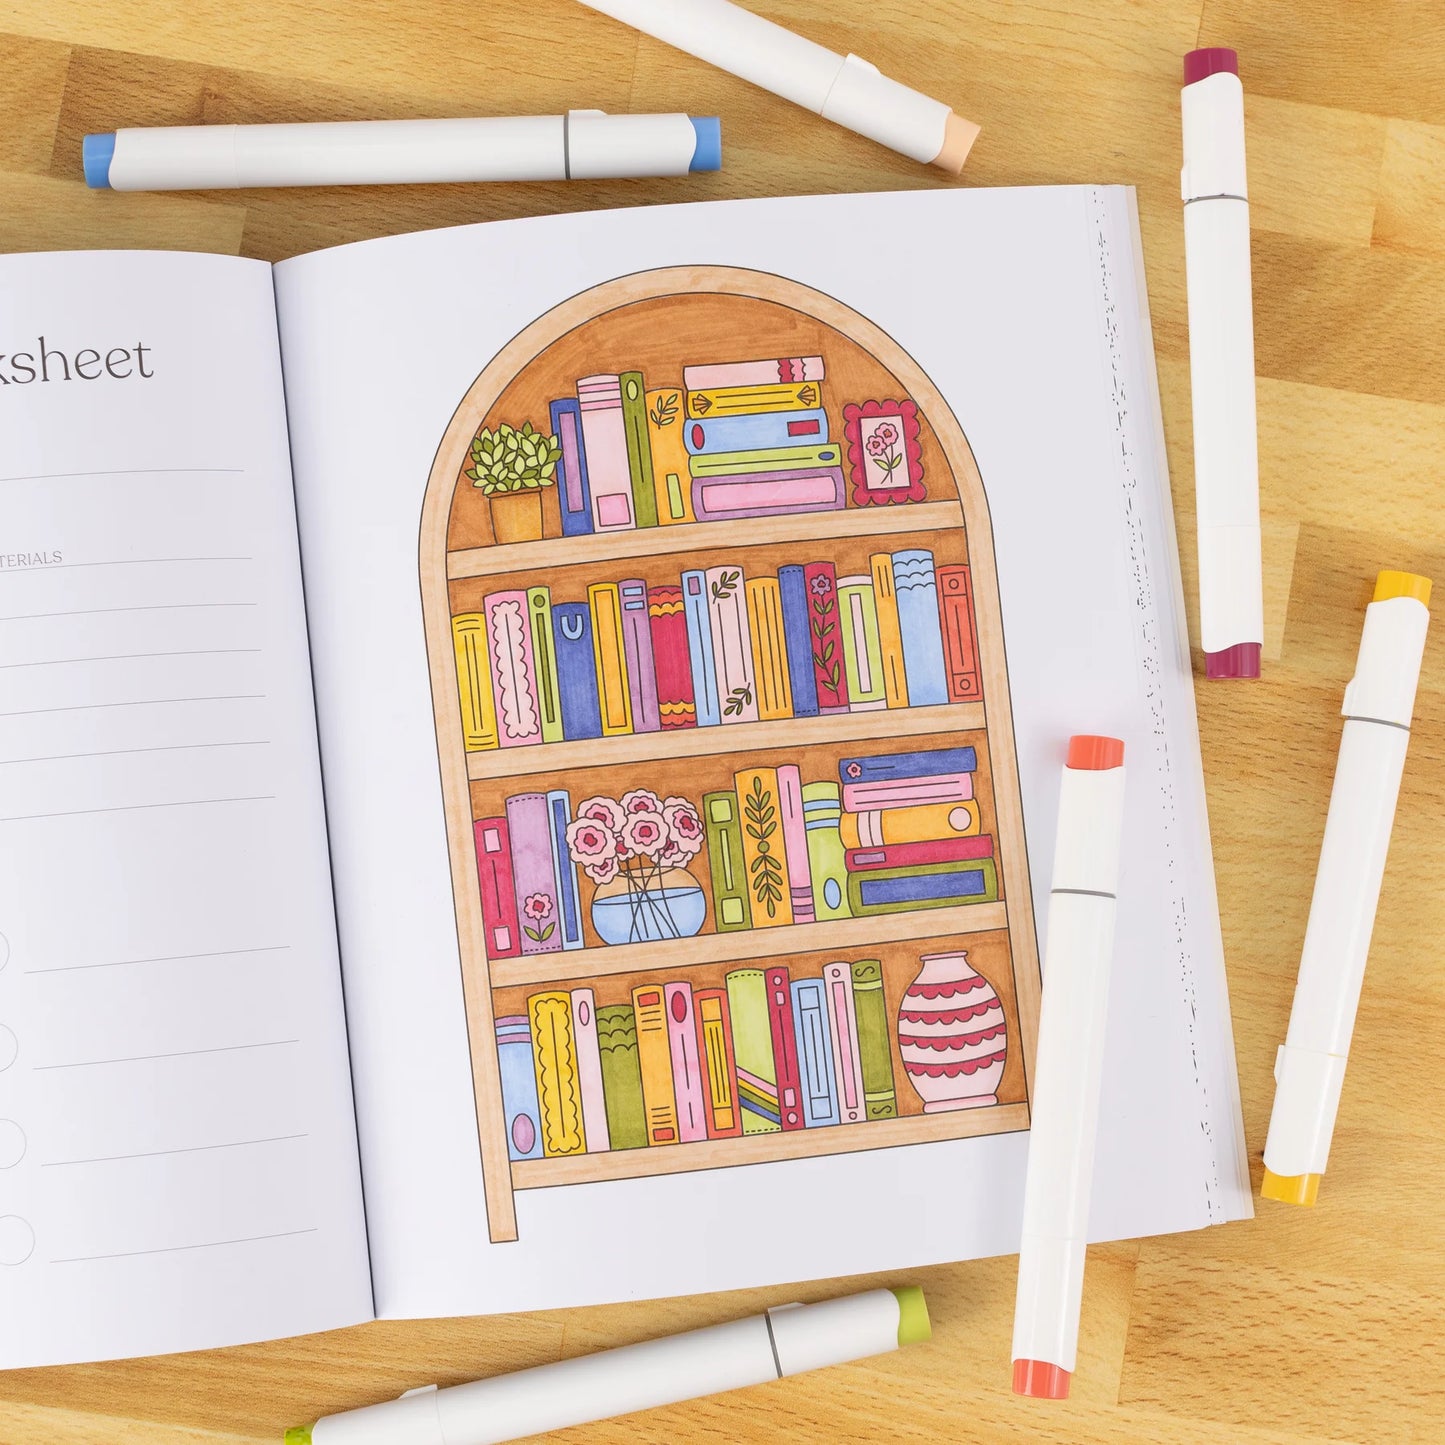 ksheet
TERIALS